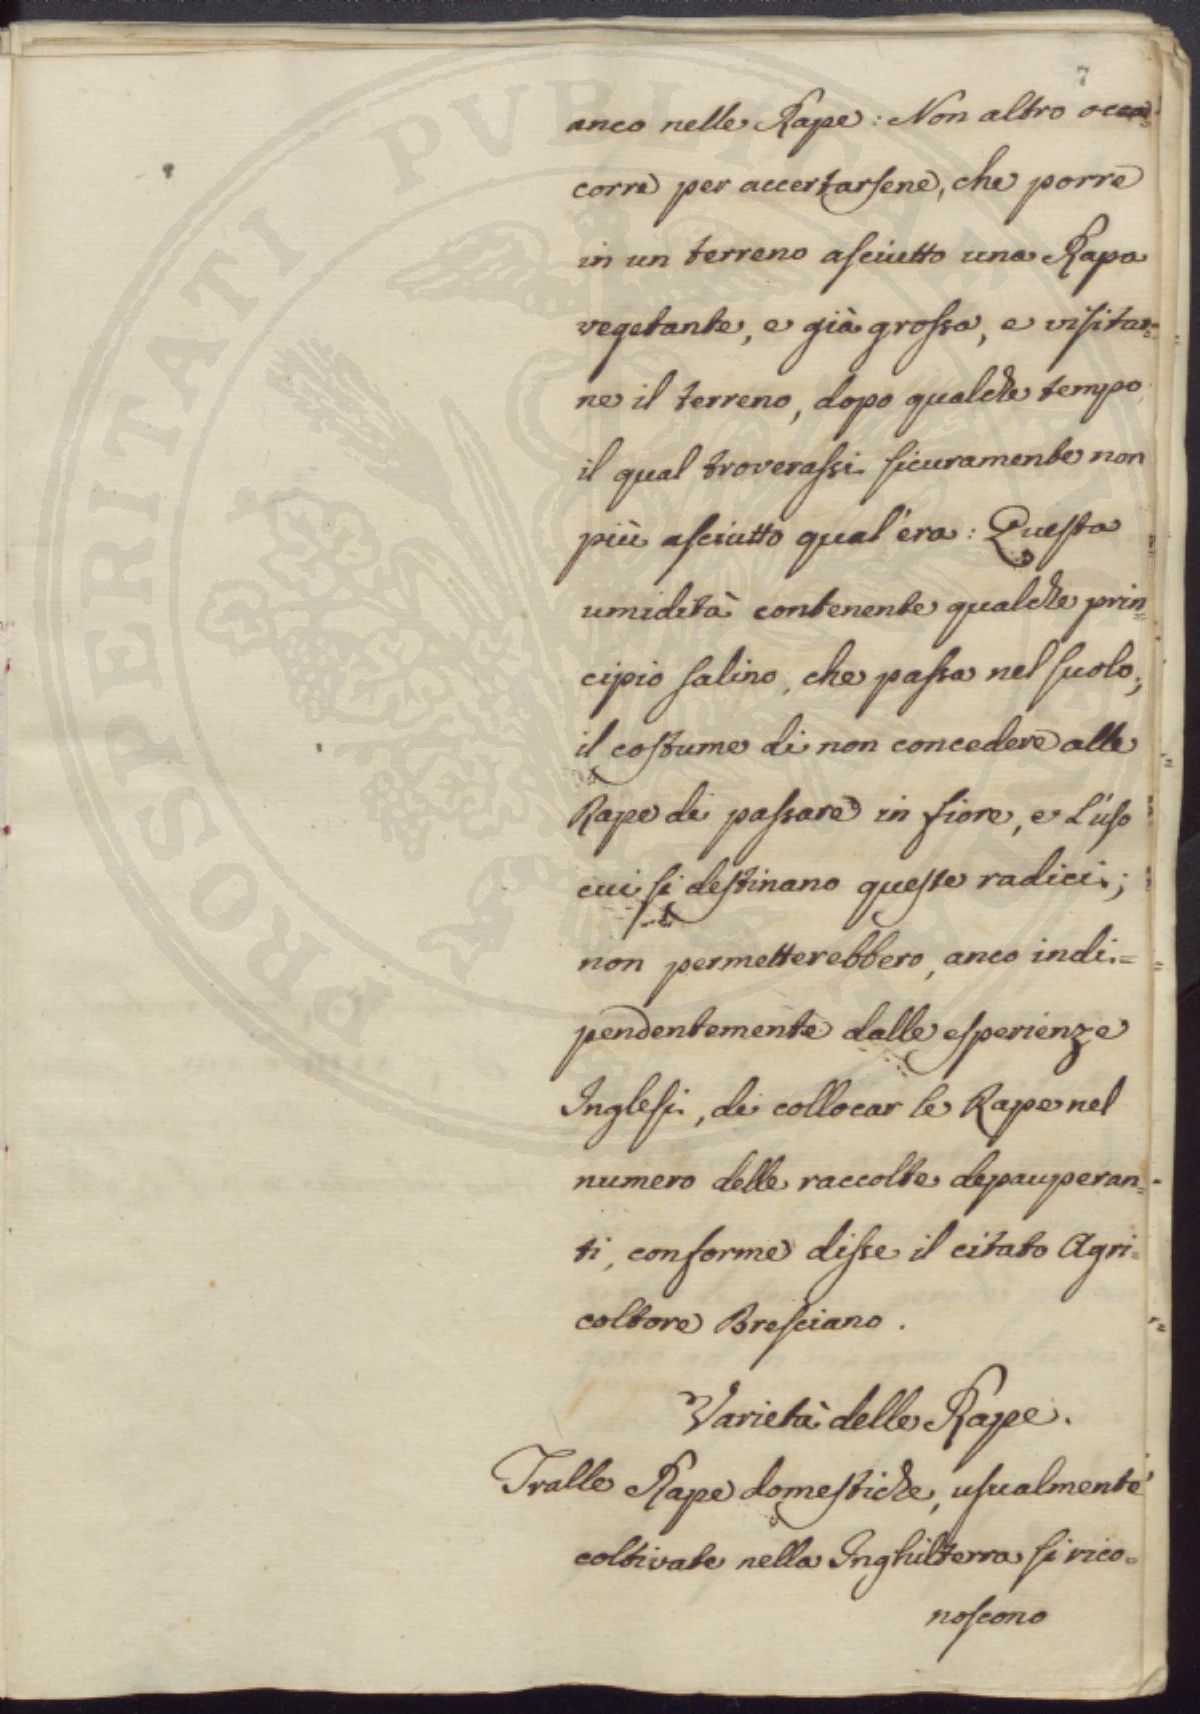 7
anco nelle Rape: Non altro oc=
corre per accertarsene, che porre
in un terreno asciutto una Rapa
vegetante, e già grossa, e visitar=
ne il terreno, dopo qualche tempo
il qual troverassi sicuramente non
più asciutto qual'era: Questa
umidità contenente qualche prin=
cipio salino, che passa nel suolo;
il costume di non concedere alle
Rape di passare in fiore, e l'uso
cui si destinano queste radici;
non permetterebbero, anco indi=
pendentemente dalle esperienze
Inglesi, di collocar le Rape nel
numero delle raccolte depauperan=
ti, conforme disse il citato Agri=
coltore Bresciano.
Varietà delle Rape.
Tralle Rape domestiche, usualmente
coltivate nella Inghilterra si rico=
noscono
PROSPERITATI PVBLICAE